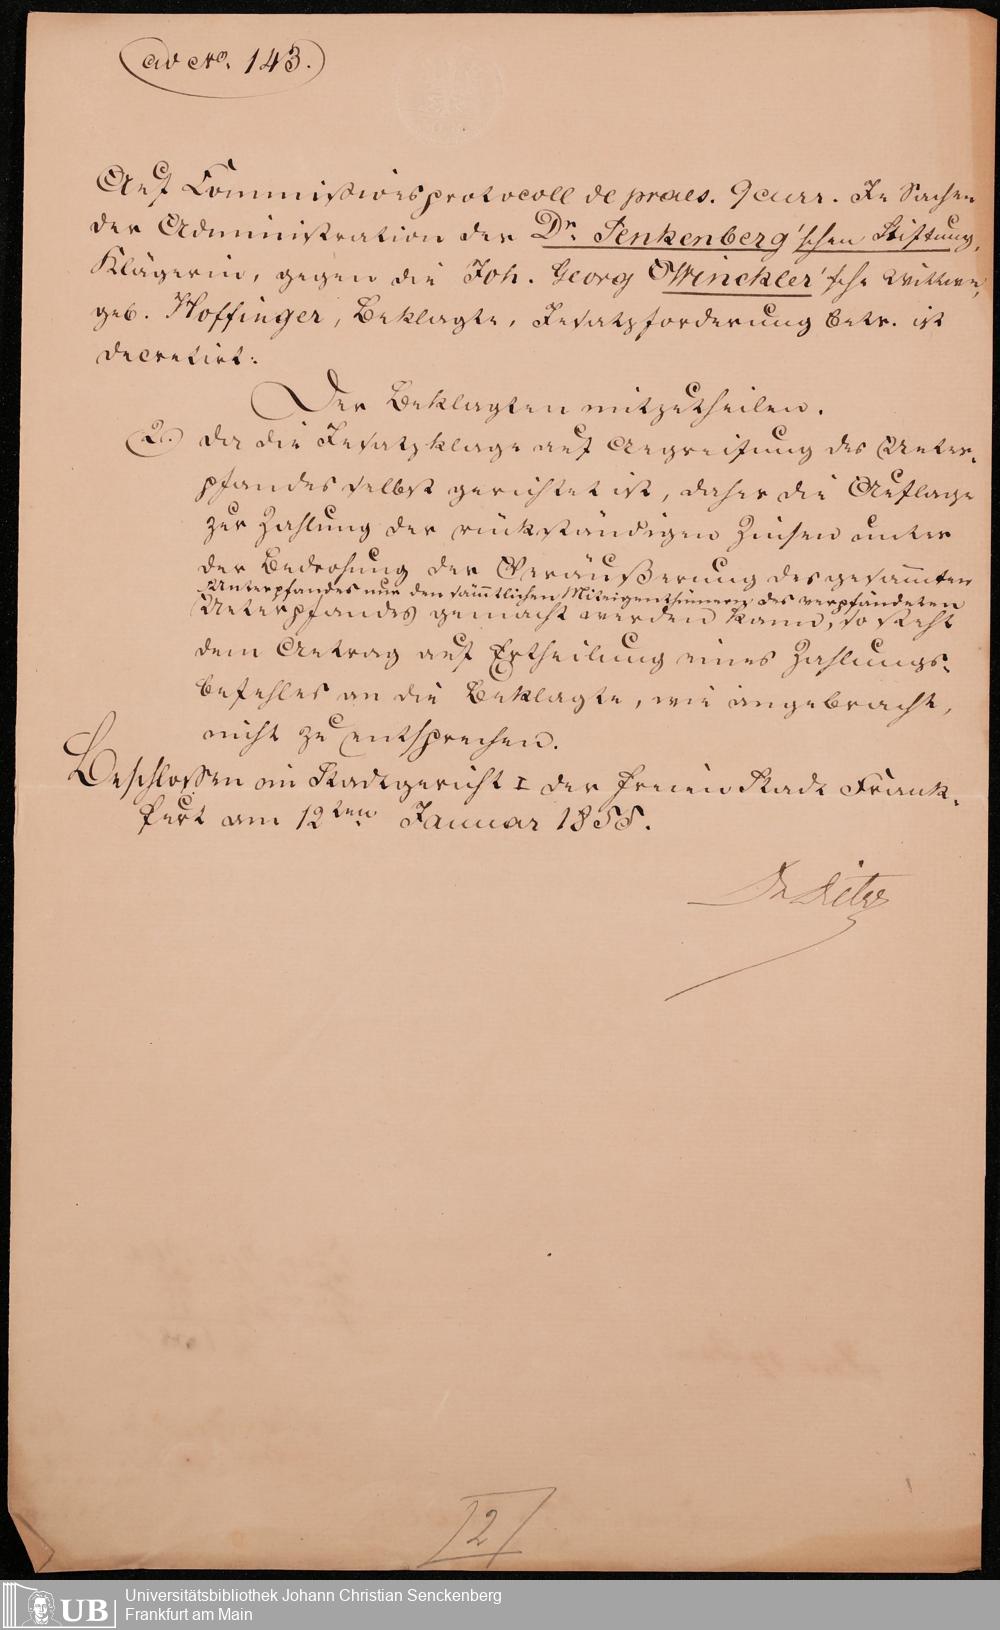 ad No. 143.
Auf Commissionsprotocoll de praes. 9 curr. In Sachen
der Administration der Dr. Senkenberg'schen Stiftung,
Klägerin, gegen die Joh. Georg Winckler'sche Wittwe,
geb. Hoffinger, Beklagte, Insatzforderung betr. ist
decretirt:
Der Beklagten mitzutheilen.
2. da die Insatzklage auf Angreifung des Unter-
pfandes selbst gerichtet ist, daher die Auflage
zur Zahlung der rückständigen Zinsen unter
der Bedrohung der Veräußerung des gesammten
Unterpfandes nur den sämmtlichen Miteigenthümern des verpfändeten
Unterpfandes gemacht werden kann, so steht
dem Antrag auf Ertheilung eines Zahlungs-
befehles an die Beklagte, wie angebracht,
nicht zu entsprechen.
Beschlossen im Stadtgericht I der freien Stadt Frank-
furt am 12ten Januar 1855.
Dr
2
UB
Universitätsbibliothek Johann Christian Senckenberg
Frankfurt am Main